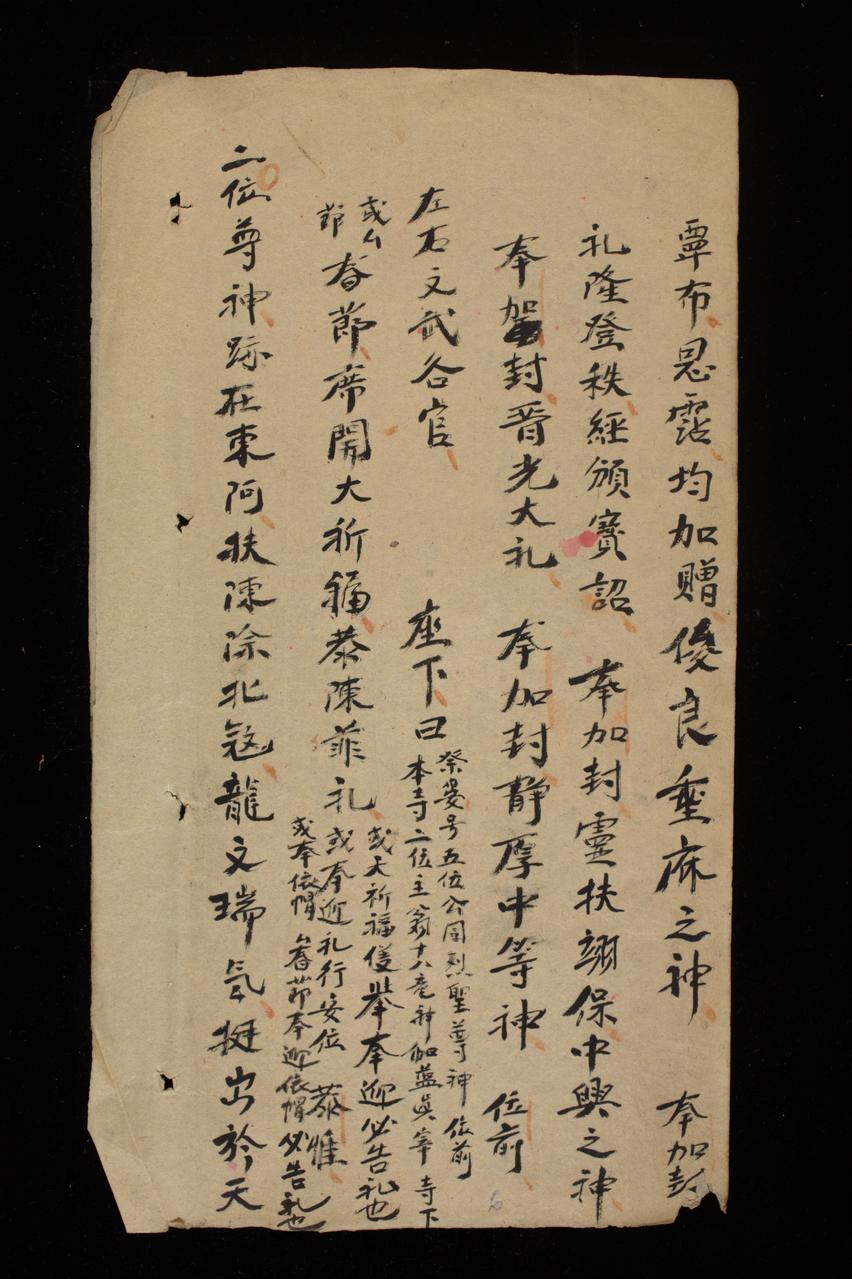 覃布恩霑均加贈優良垂庥之神 奉加封
礼隆登秩經頒寳詔 奉加封靈扶翊保中興之神
奉加封晋光大礼 奉加封静厚中等神 位前
左右文武各官 座下曰
祭晏号五位公同烈聖尊神 位前
本寺二位主翁十八竜神伽藍真宰 寺下
或厶節春節席開大祈福恭陳菲礼
或大祈福仗举奉迎必告礼也
或奉迎礼行安位 恭惟
或奉依帽 厶春節奉迎依帽必告礼也
二位尊神跡在東阿扶陳除北寇龍文瑞氣挺出於天